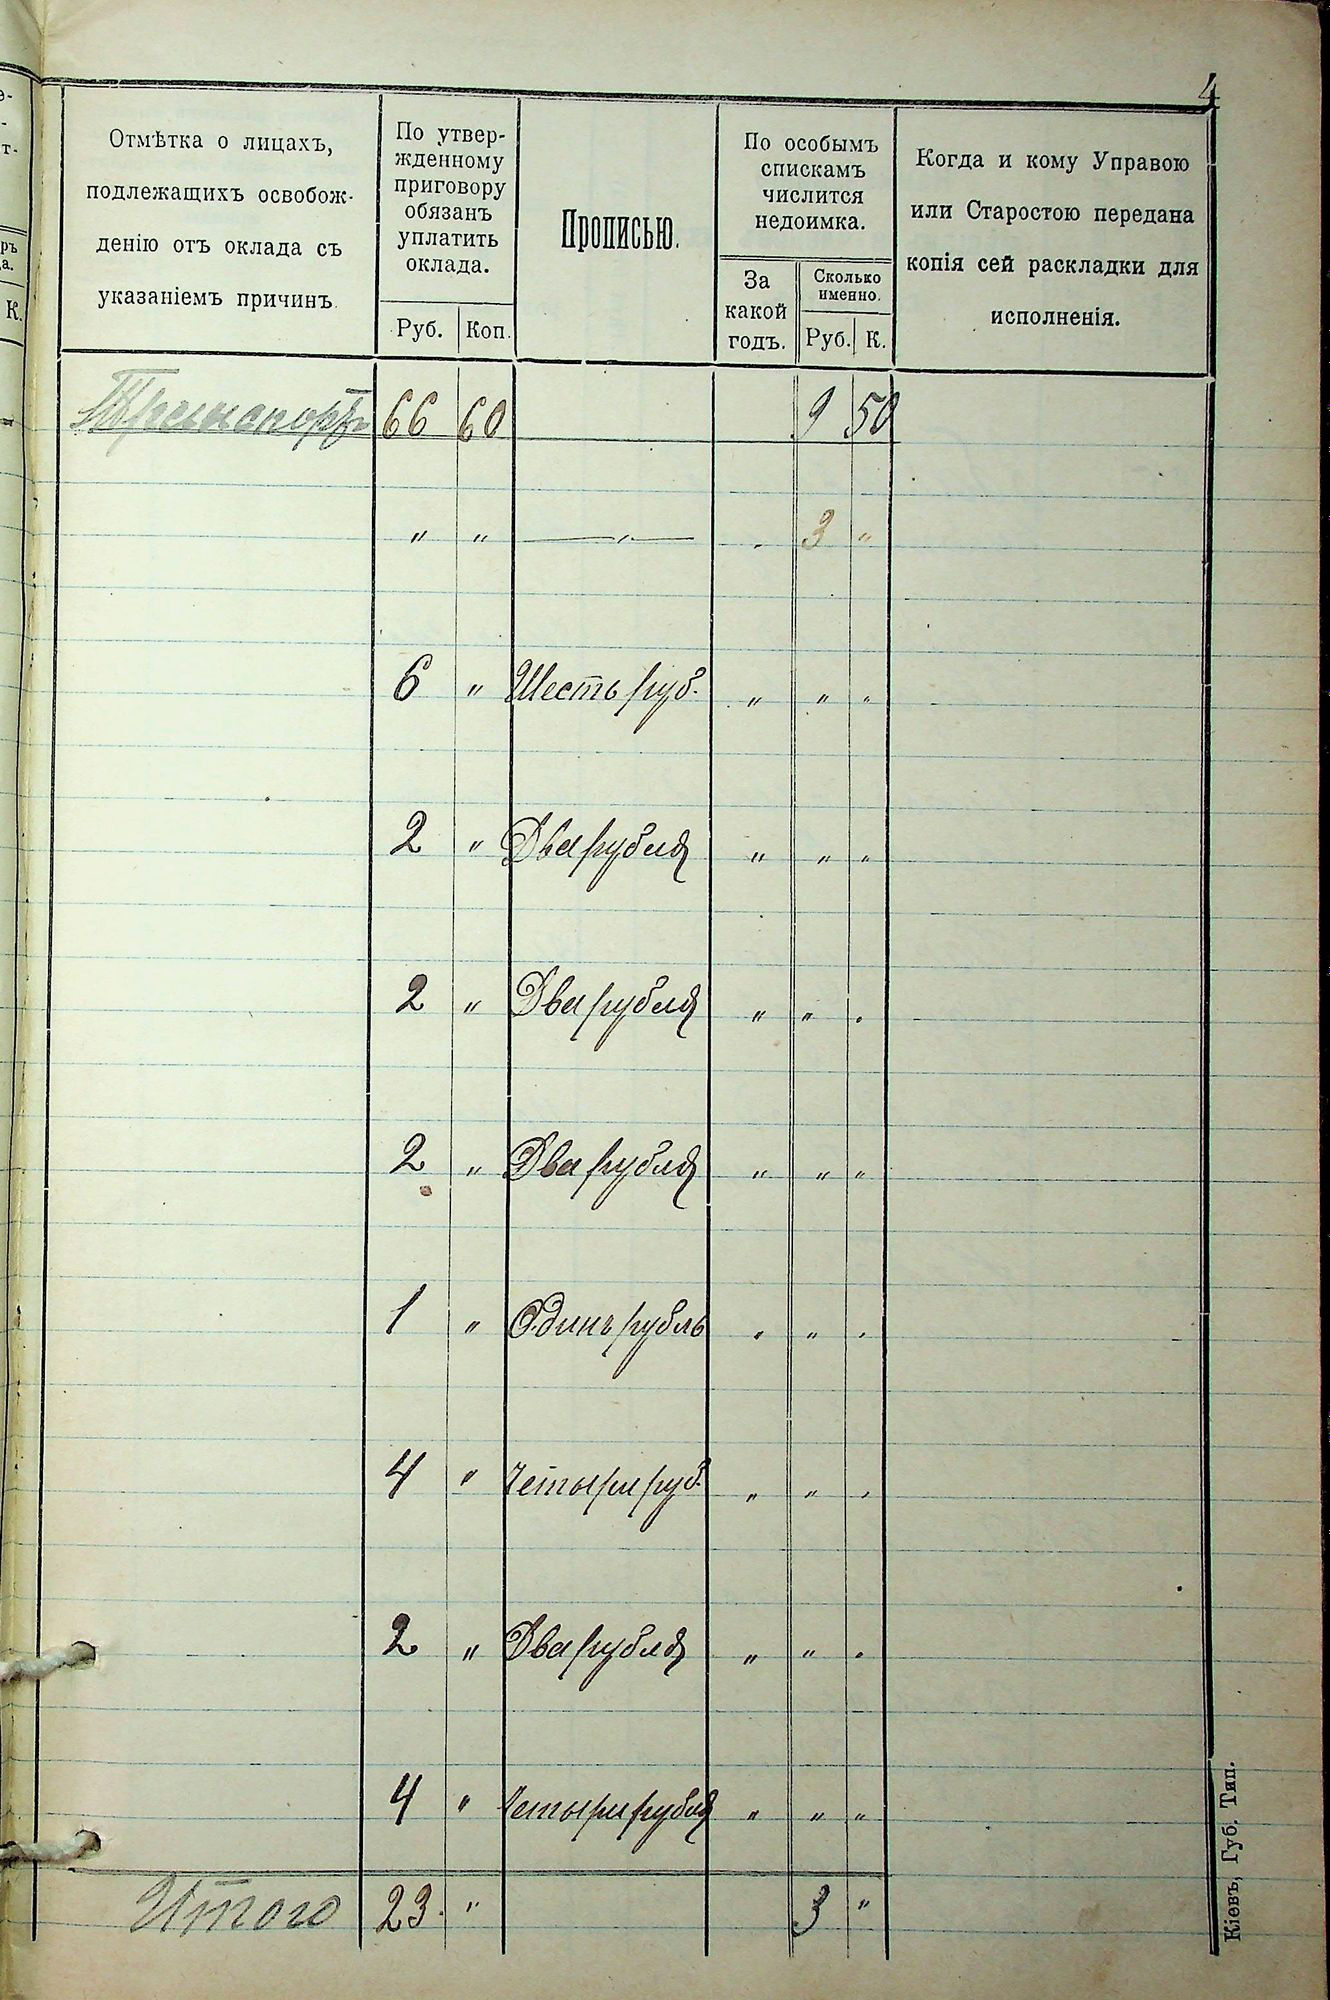 4
Отмѣтка о лицахъ,
подлежащихъ освобож-
денію отъ оклада съ
указаніемъ причинъ.
По утвер-
жденному
приговору
обязанъ
уплатить
оклада.
Руб. Коп.
Прописью.
По особымъ
спискамъ
числится
недоимка.
За
какой
годъ.
Сколько
именно.
Руб. К.
Когда и кому Управою
или Старостою передана
копія сей раскладки для
исполненія.
Транспортъ 66 60 9 50
" " —"— " 3 "
6 " Шесть руб. " " "
2 " Два рубля " " "
2 " Два рубля " " "
2 " Два рубля " " "
1 " Одинъ рубль " " "
4 " Четыре руб. " " "
2 " Два рубля " " "
4 " Четыре рубля " " "
Итого 23 " 3 "
Кіевъ, Губ. Тип.
ръ
а.
К.